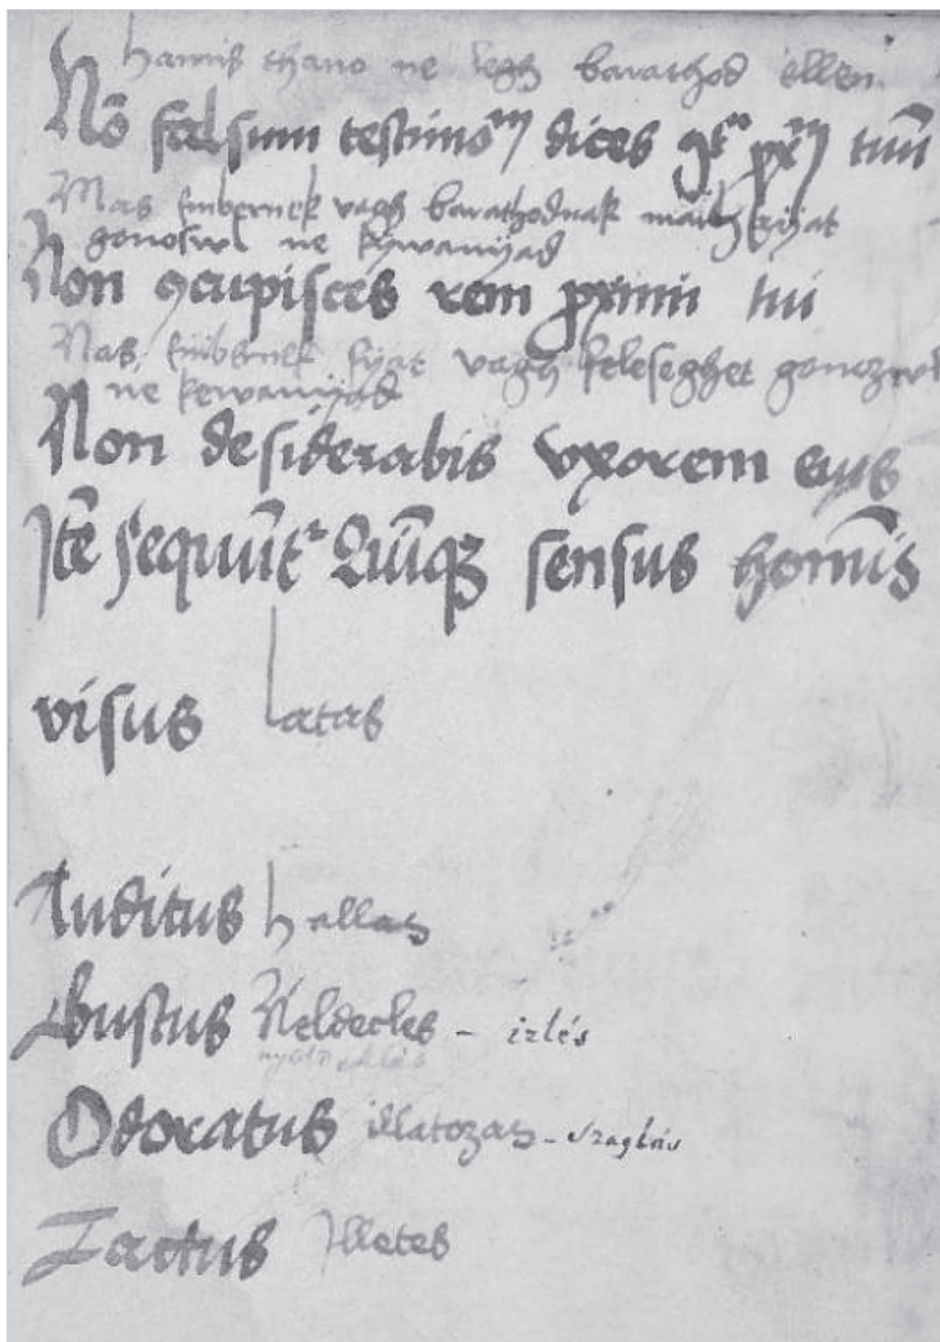 hamis thano ne legh barathod ellen
Nō falsum testimoᵐ dices ꝯtᵃ pxᵐ tuū
Mas Embernek vagh barathodnak
gonoswl ne kywanyad
Non ꝯcupisces rem pximi tui
Mas embernek fyat vagh feleseghet gonozwl
ne kewanyad
Non desiderabis vxorem eius
Itē sequūtʳ Quīqꝫ sensus homīs
visus latas
Auditus hallas
Gustus Neldecles - izlés
Odoratus illatozas - szaglás
Tactus Illetes